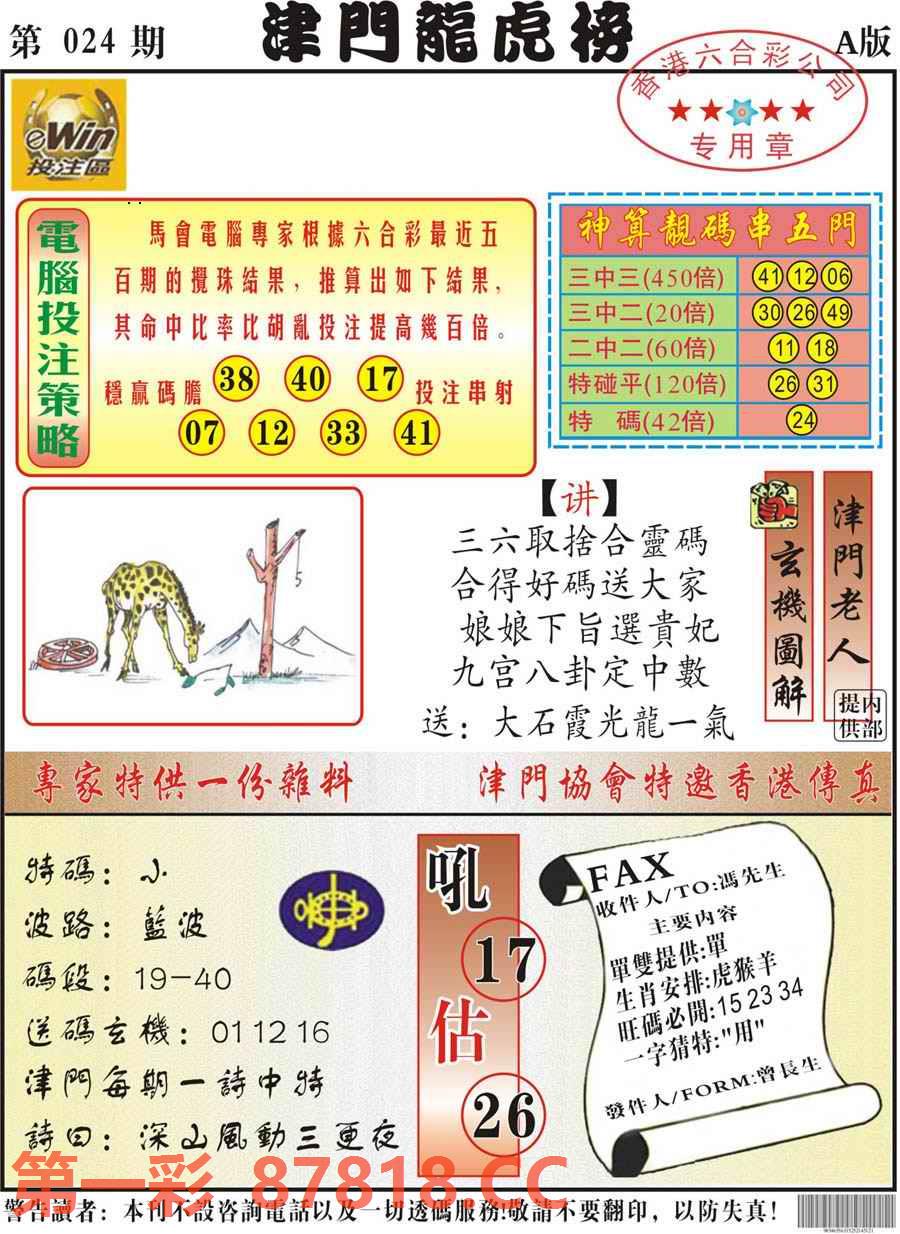 第 024 期
津門龍虎榜
A版
香港六合彩公司
专用章
eWin
投注區
電腦投注策略
馬會電腦專家根據六合彩最近五
百期的攪珠結果，推算出如下結果，
其命中比率比胡亂投注提高幾百倍。
穩贏碼膽 38 40 17 投注串射
07 12 33 41
神算靚碼串五門
三中三(450倍) 41 12 06
三中二(20倍) 30 26 49
二中二(60倍) 11 18
特碰平(120倍) 26 31
特 碼(42倍) 24
【讲】
三六取捨合靈碼
合得好碼送大家
娘娘下旨選貴妃
九宫八卦定中數
送：大石霞光龍一氣
玄機圖解
津門老人
内部提供
專家特供一份雜料
津門協會特邀香港傳真
特碼：小
波路：藍波
碼段：19-40
送碼玄機：01 12 16
津門每期一詩中特
詩曰：深山風動三更夜
吼
17
估
26
FAX
收件人/TO:馮先生
主要内容
單雙提供:單
生肖安排:虎猴羊
旺碼必開:15 23 34
一字猜特:"用"
發件人/FORM:曾長生
第一彩 87818.CC
警告讀者：本刊不設咨詢電話以及一切透碼服務!敬請不要翻印，以防失真!